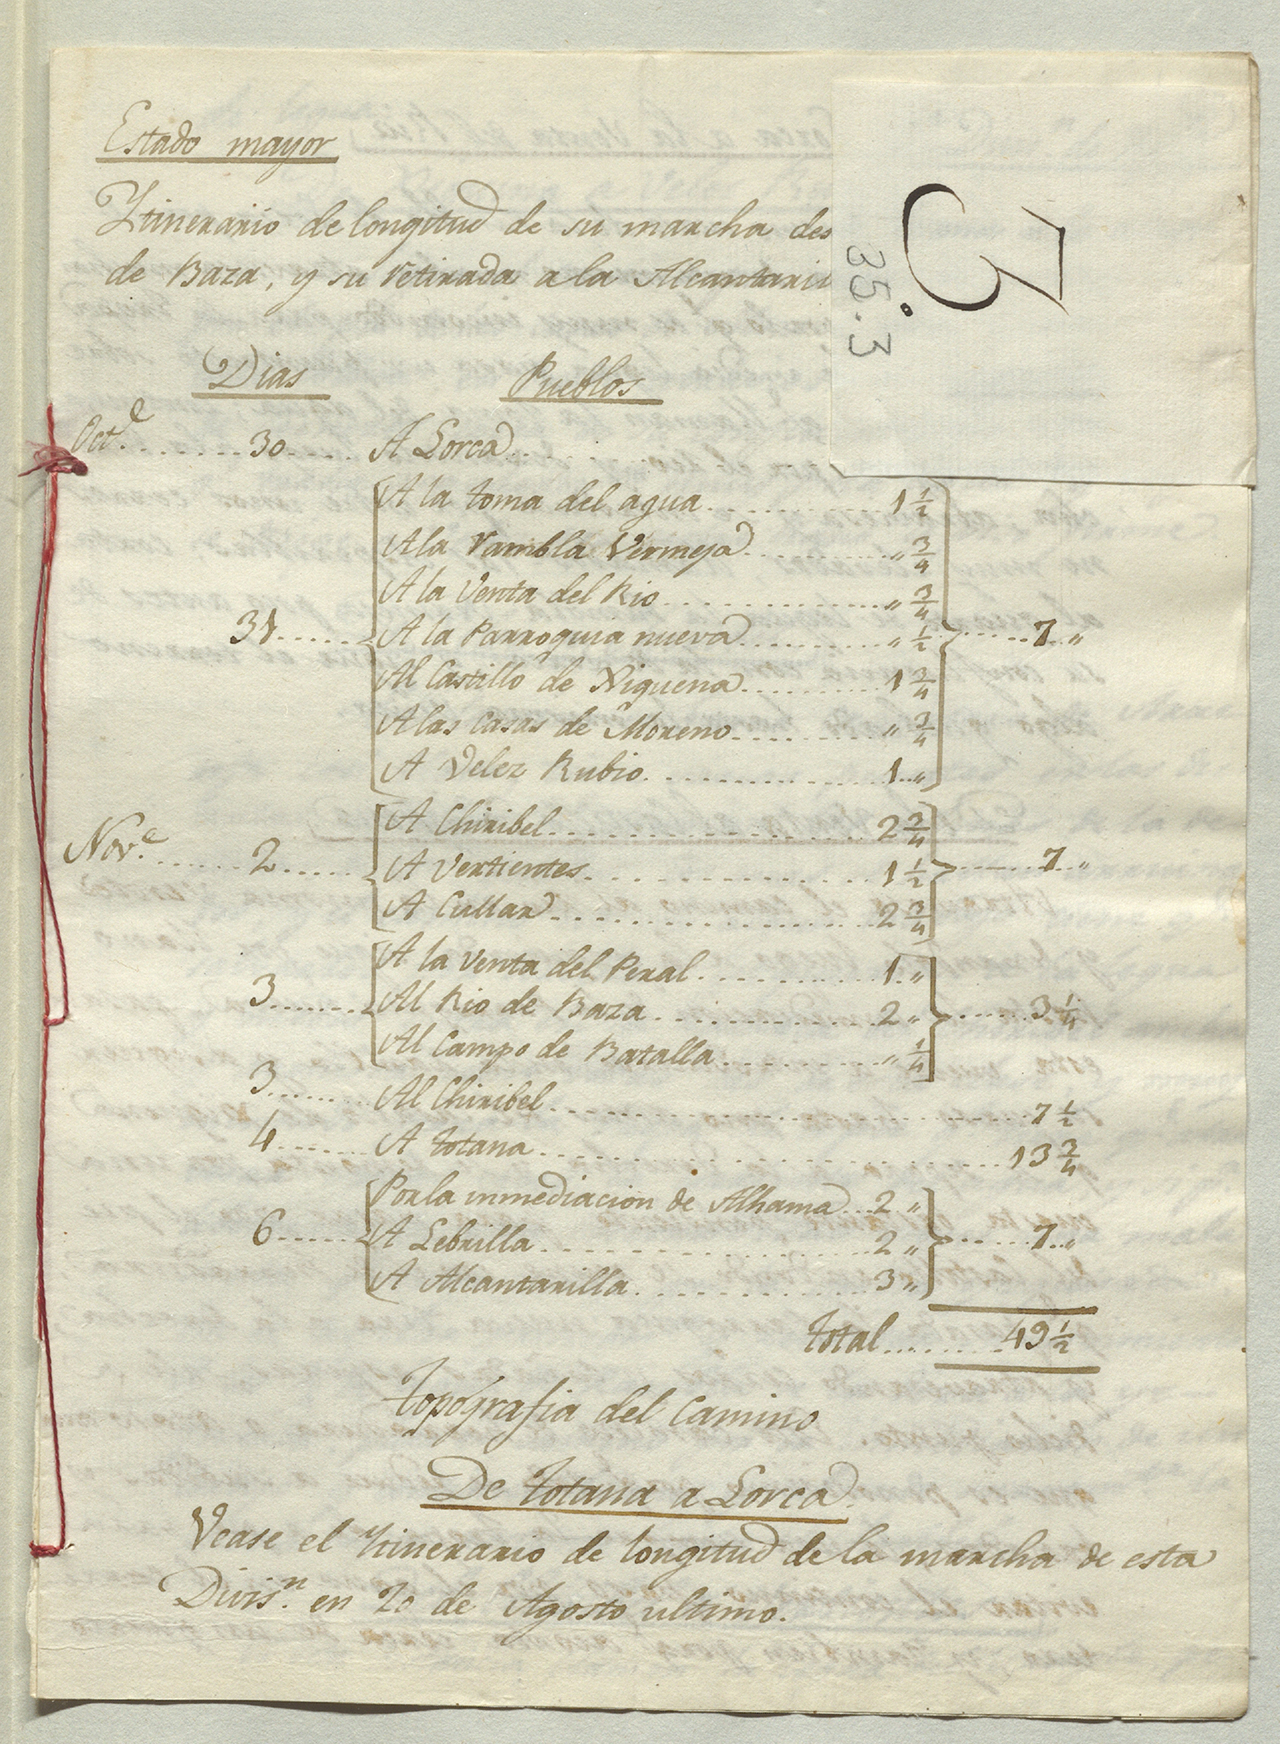 Estado mayor
Ytinerario de longitud de su marcha des
de Baza, y su retirada a la Alcantari
3.
35.3
Dias Pueblos
Oct.e ....... 30 .... A Lorca ....
31 ..... A la toma del agua .......... 1 1/2
A la Rambla Vermeja .......... " 3/4
A la Venta del Rio .......... " 3/4
A la Parroquia nueva .......... " 1/2 ...... 7 "
Al Castillo de Xiquena .......... 1 3/4
A las Casas de Moreno .......... " 3/4
A Velez Rubio .......... 1 "
Nov.e ...... 2 ..... A Chiribel .......... 2 3/4
A Vertientes .......... 1 1/2 ...... 7 "
A Cullar .......... 2 3/4
3 ....... A la Venta del Peral .......... 1 "
Al Rio de Baza .......... 2 " ...... 3 1/4
Al Campo de Batalla .......... " 1/4
3 ....... Al Chiribel .......... 7 1/2
4 ...... A Totana .......... 13 3/4
6 ...... Por la inmediacion de Alhama ... 2 "
A Lebrilla .......... 2 " ...... 7 "
A Alcantarilla .......... 3 "
Total ........ 49 1/2
Topografia del Camino
De Totana a Lorca.
Vease el Ytinerario de longitud de la marcha de esta
Divis.n en 20 de Agosto ultimo.